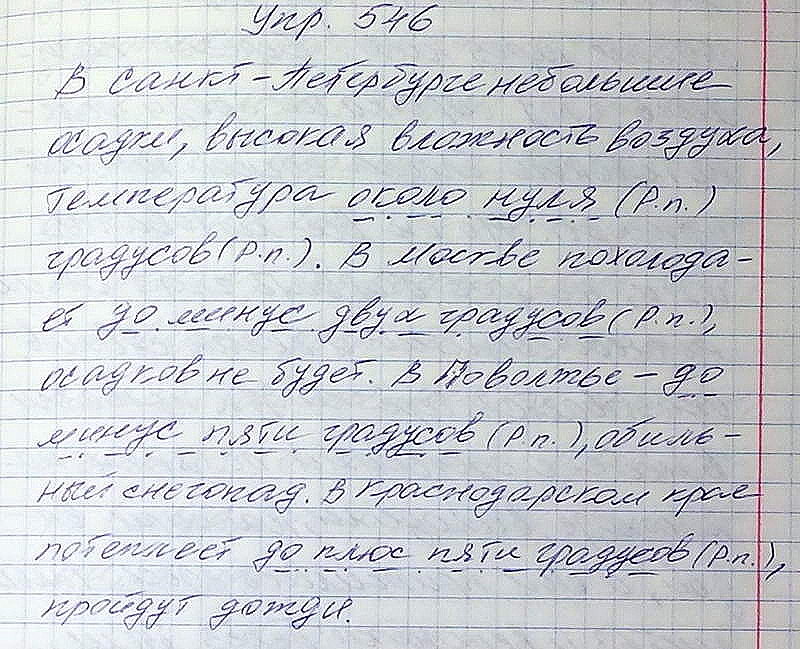 Упр. 546
В Санкт-Петербурге небольшие
осадки, высокая влажность воздуха,
температура около нуля (Р.п.)
градусов (Р.п.). В Москве похолода-
ет до минус двух градусов (Р.п.),
осадков не будет. В Поволжье - до
минус пяти градусов (Р.п.), обиль-
ный снегопад. В Краснодарском крае
потеплеет до плюс пяти градусов (Р.п.),
пройдут дожди.